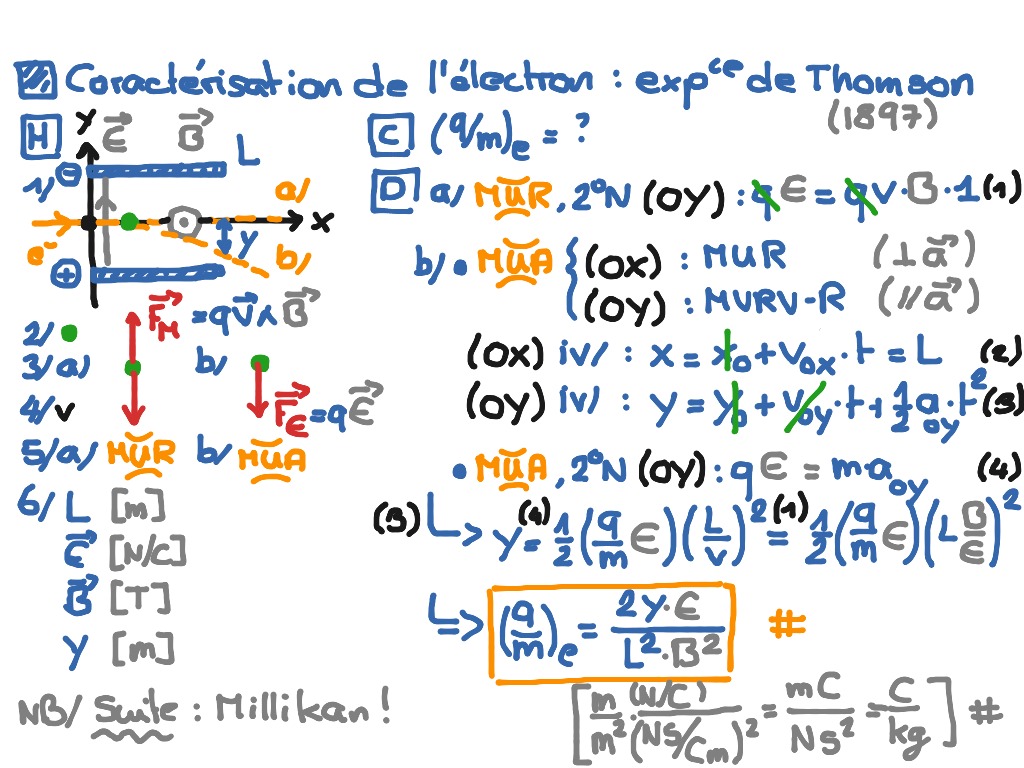 Caractérisation de l'électron : expce de Thomson
(1897)
H
Y
E
B
L
1/
⊖
a/
X
e-
y
b/
⊕
2/
3/ a)
F_M = q v ∧ B
b/
4/ v
F_E = q E
5/ a/ MUR b/ MUA
6/ L [m]
E [N/C]
B [T]
Y [m]
NB/ Suite : Millikan !
C (q/m)e = ?
D a/ MUR, 2°N (OY) : q E = q v · B · 1 (1)
b/ • MUA { (OX) : MUR (⊥ a)
(OY) : MVRU-R (// a)
(OX) iv/ : x = x0 + v0x · t = L (2)
(OY) iv/ : y = y0 + v0y · t + 1/2 a0y · t² (3)
• MUA, 2°N (OY) : q E = m·a0y (4)
(3) L> y (4)= 1/2 (q/m E) (L/v)² (1)= 1/2 (q/m E) (L B/E)²
L=> (q/m)e = 2Y·E / L²·B² #
[m/m² · (N/C)/(NS/Cm)² = mC/NS² = C/kg] #